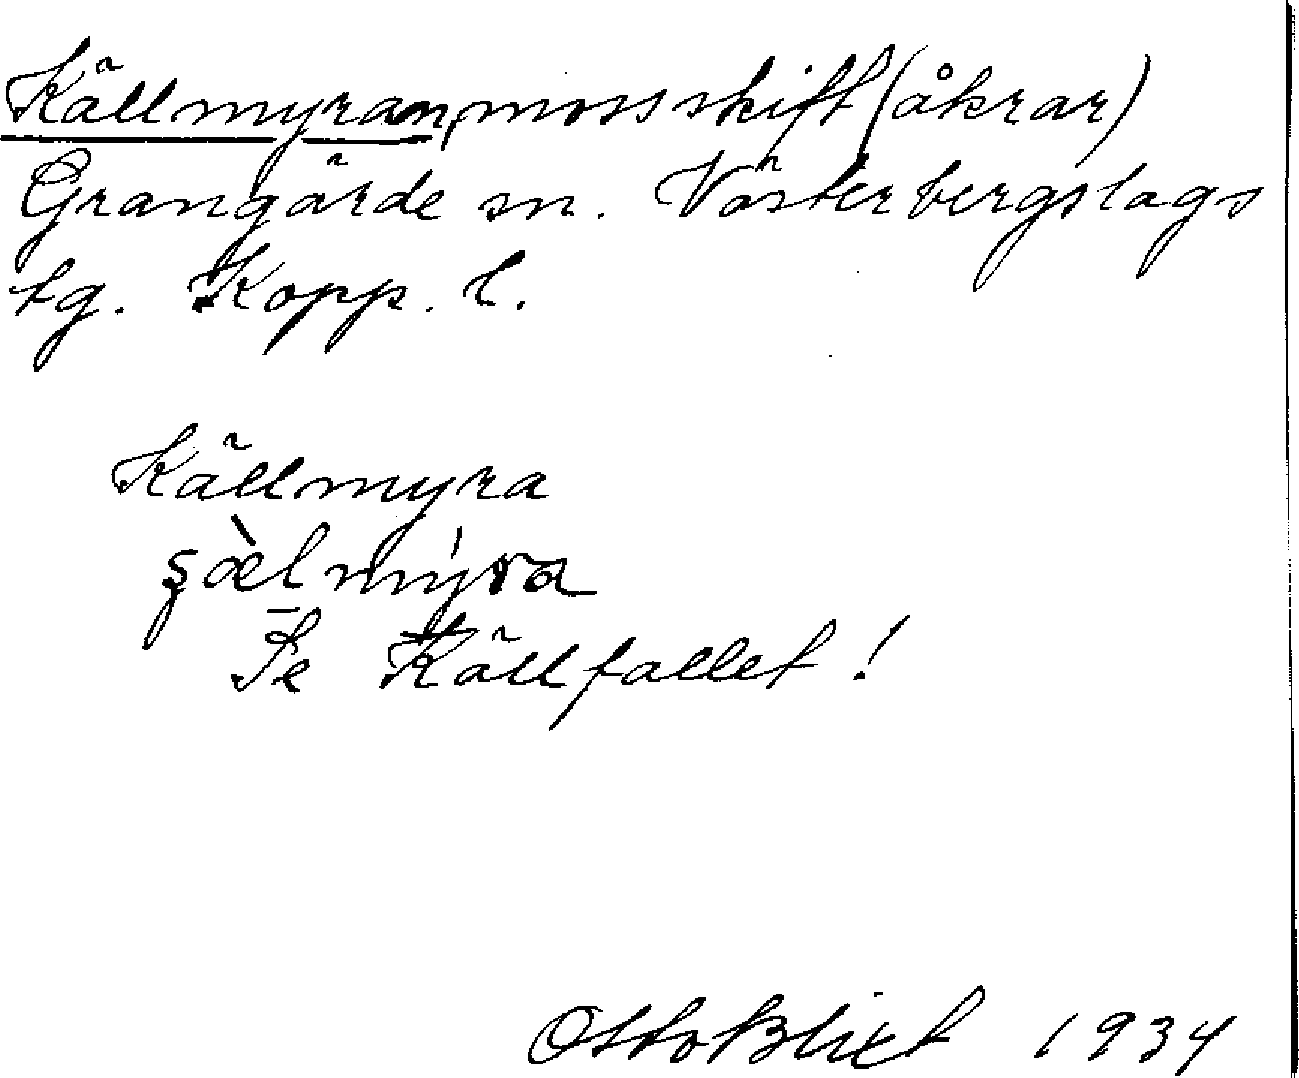 Källmyran, mossskift (åkrar)
Grangärde sn. Västerbergslags
tg. Kopp. l.
Källmyra
Se Källfallet!
Otto Blixt 1934